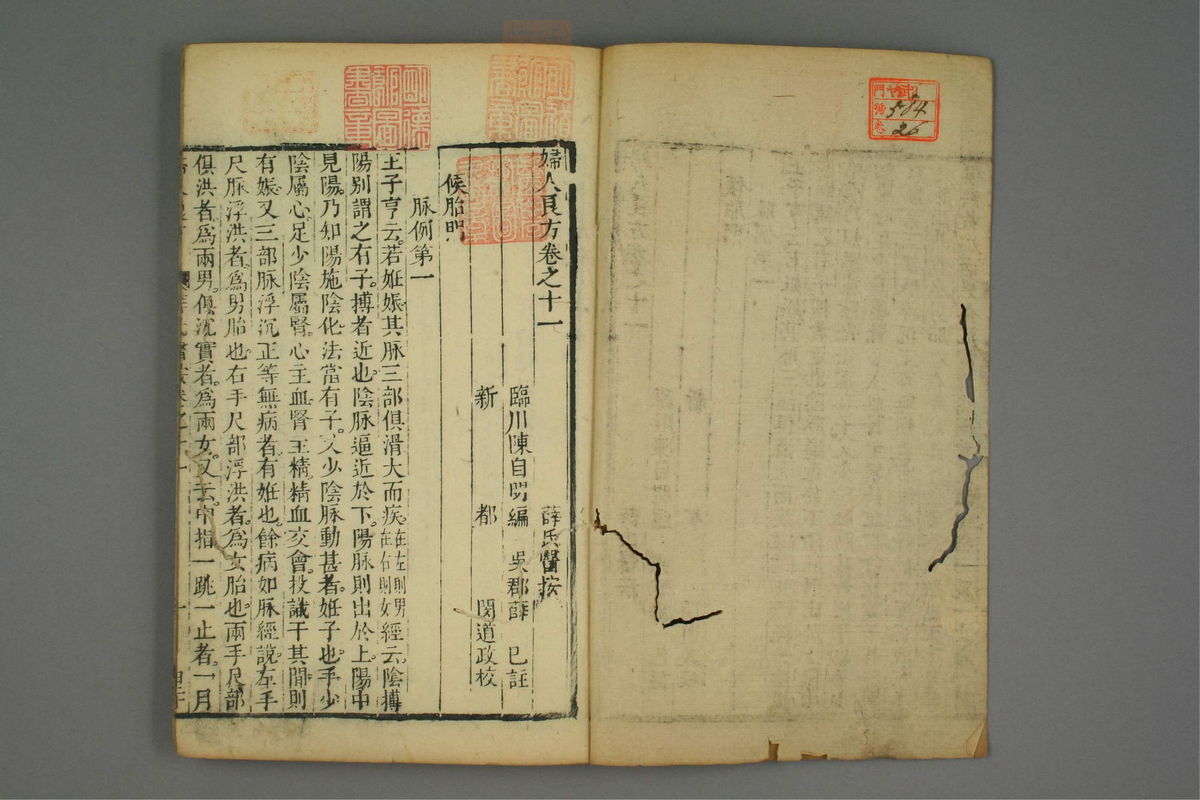 婦人良方卷之十一
薛氏醫按
臨川陳自明編 吳郡薛 已註
新 都 閔道政校
候胎門
脉例第一
王子亨云。若姙娠其脉三部俱滑大而疾。在左則男在右則女經云。陰搏
陽別謂之有子。搏者近也。陰脉逼近於下。陽脉則出於上。陽中
見陽。乃知陽施陰化。法當有子。又少陰脉動甚者。姙子也。手少
陰屬心。足少陰屬腎。心主血。腎主精。精血交會。投識于其間。則
有娠。又三部脉浮沉正等無病者。有姙也。餘病如脉經說。左手
尺脉浮洪者。爲男胎也。右手尺部浮洪者。爲女胎也。兩手尺部
俱洪者。爲兩男。俱沉實者。爲兩女。又云。中指一跳一止者。一月
明德
館圖
書章
門
號 584
卷 26